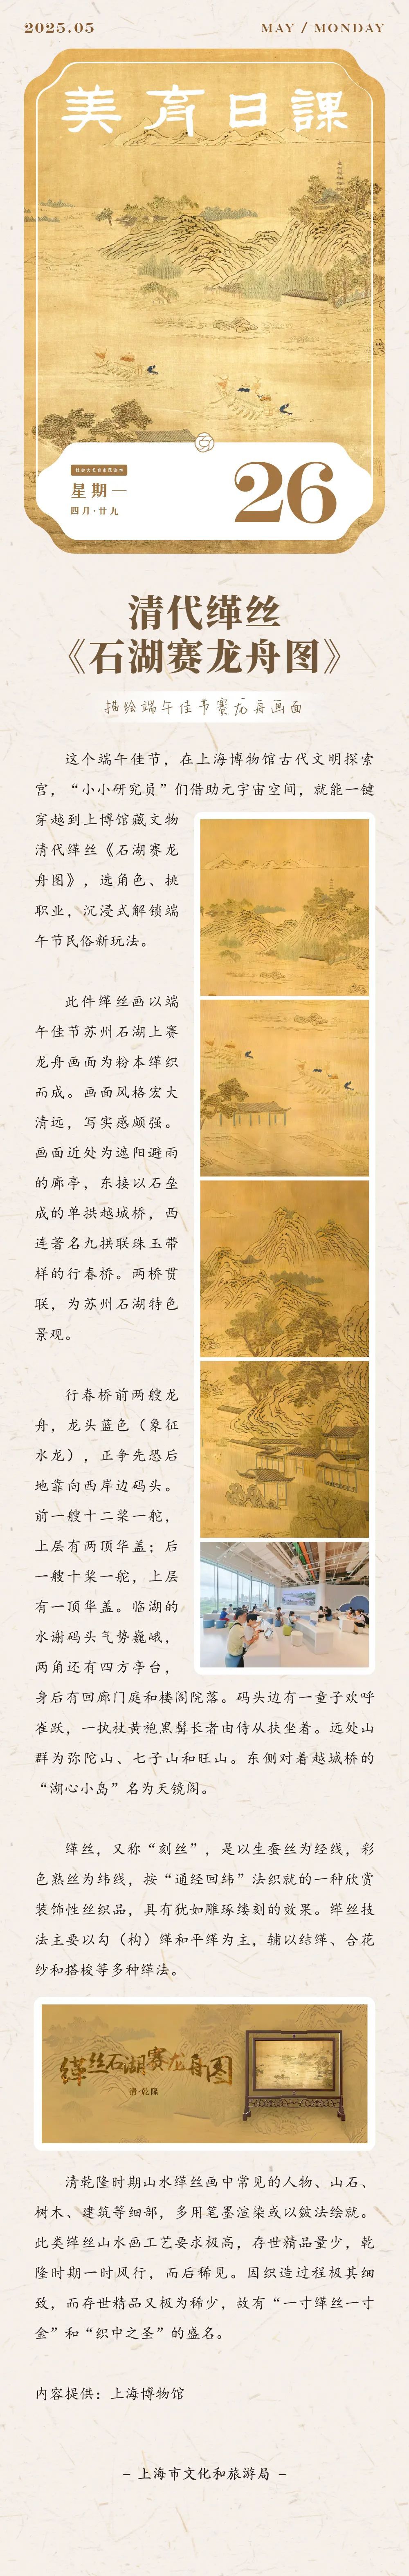 2025.05
MAY / MONDAY
美育日課
星期一
四月·廿九
26
清代缂丝
《石湖赛龙舟图》
描绘端午佳节赛龙舟画面
这个端午佳节，在上海博物馆古代文明探索
宫，“小小研究员”们借助元宇宙空间，就能一键
穿越到上博馆藏文物
清代缂丝《石湖赛龙
舟图》，选角色、挑
职业，沉浸式解锁端
午节民俗新玩法。
此件缂丝画以端
午佳节苏州石湖上赛
龙舟画面为粉本缂织
而成。画面风格宏大
清远，写实感颇强。
画面近处为遮阳避雨
的廊亭，东接以石垒
成的单拱越城桥，西
连著名九拱联珠玉带
样的行春桥。两桥贯
联，为苏州石湖特色
景观。
行春桥前两艘龙
舟，龙头蓝色（象征
水龙），正争先恐后
地靠向西岸边码头。
前一艘十二桨一舵，
上层有两顶华盖；后
一艘十桨一舵，上层
有一顶华盖。临湖的
水谢码头气势巍峨，
两角还有四方亭台，
身后有回廊门庭和楼阁院落。码头边有一童子欢呼
雀跃，一执杖黄袍黑髯长者由侍从扶坐着。远处山
群为弥陀山、七子山和旺山。东侧对着越城桥的
“湖心小岛”名为天镜阁。
缂丝，又称“刻丝”，是以生蚕丝为经线，彩
色熟丝为纬线，按“通经回纬”法织就的一种欣赏
装饰性丝织品，具有犹如雕琢缕刻的效果。缂丝技
法主要以勾（构）缂和平缂为主，辅以结缂、合花
纱和搭梭等多种缂法。
缂丝石湖赛龙舟图
清·乾隆
清乾隆时期山水缂丝画中常见的人物、山石、
树木、建筑等细部，多用笔墨渲染或以皴法绘就。
此类缂丝山水画工艺要求极高，存世精品量少，乾
隆时期一时风行，而后稀见。因织造过程极其细
致，而存世精品又极为稀少，故有“一寸缂丝一寸
金”和“织中之圣”的盛名。
内容提供：上海博物馆
– 上海市文化和旅游局 –